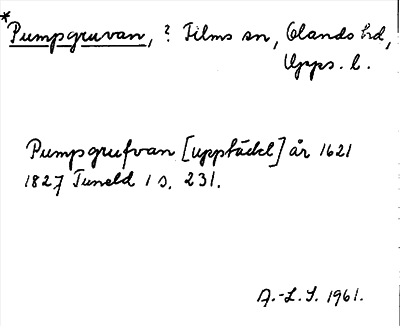 *Pumpgruvan, ? Films sn, Olands hd,
Upps. l.
Pumpgrufvan [upptäckt] år 1621
1827 Tuneld 1 s. 231.
A.-L.S. 1961.